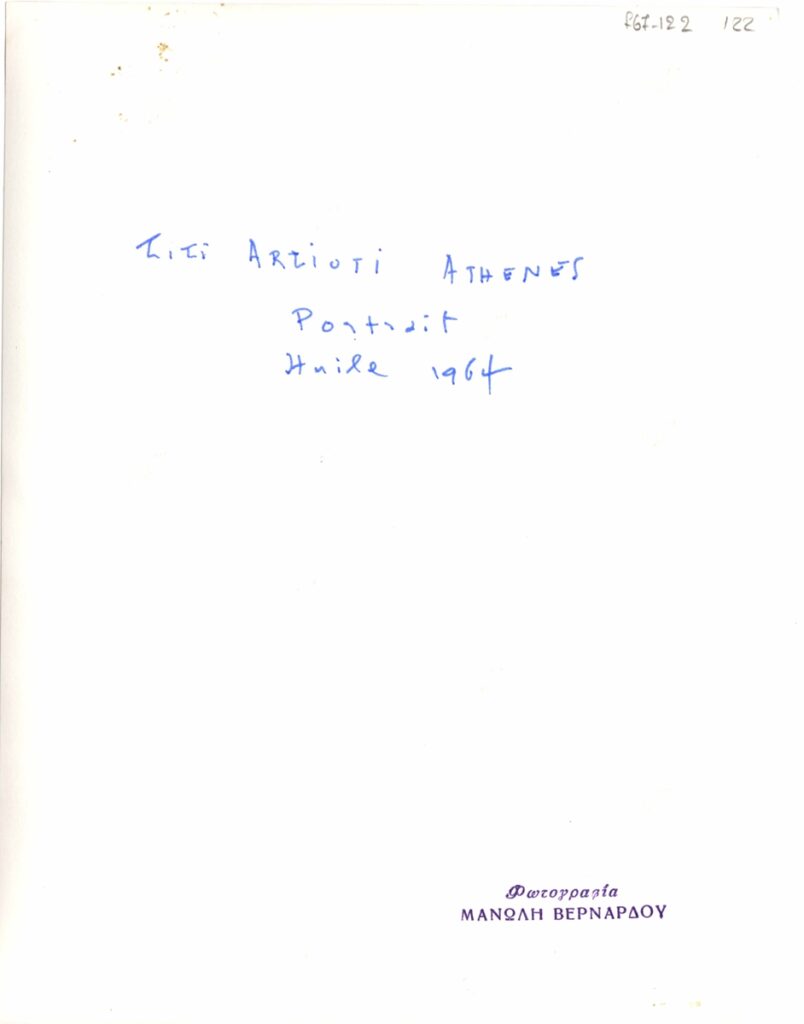 f67-122 122
ATHENES
Portrait
Huile 1964
Φωτογραφία
ΜΑΝΩΛΗ ΒΕΡΝΑΡΔΟΥ